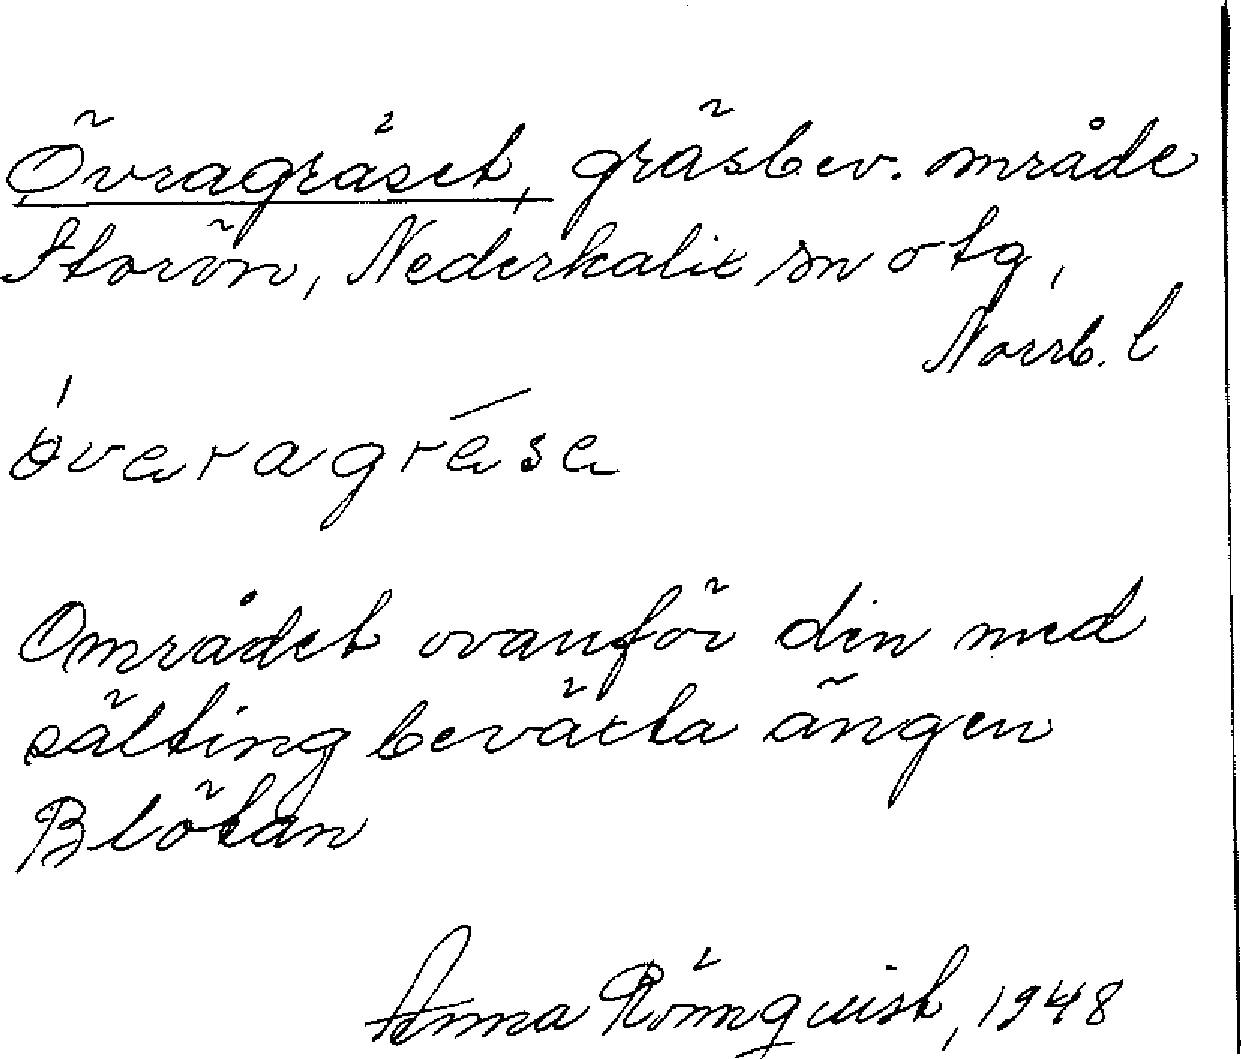 Övragräset, gräsbev. område
Storön, Nederkalix sn o tg,
Norrb. l
óveragrése
Området ovanför den med
sälting beväxta ängen
Blötan
Anna Römquist, 1948